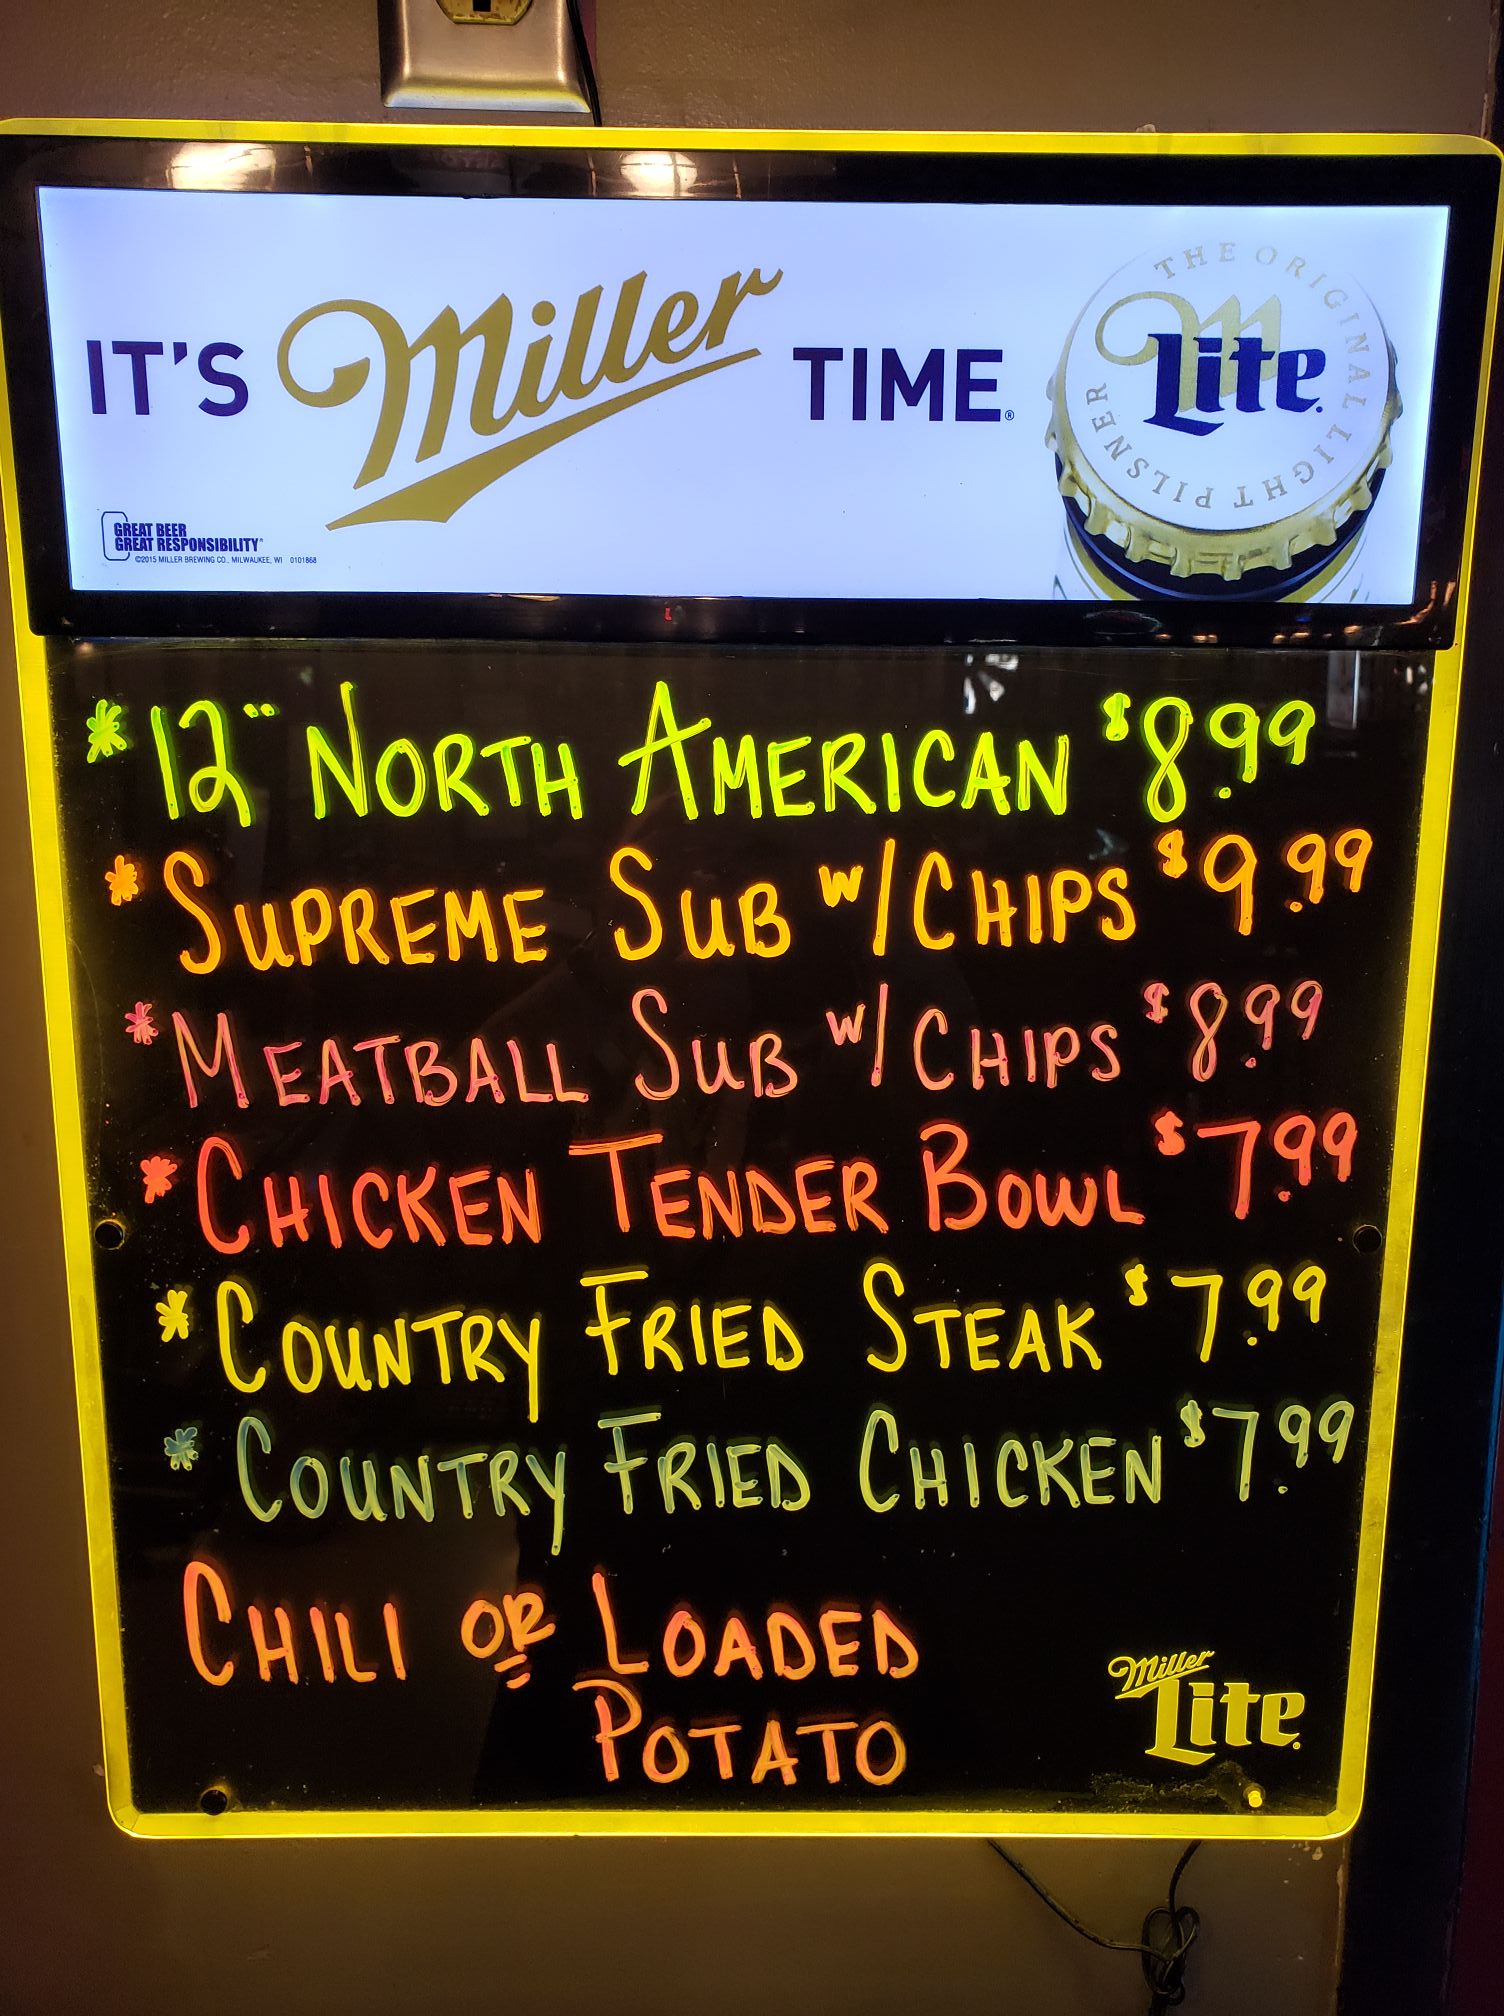 IT'S Miller TIME®
THE ORIGINAL LIGHT PILSNER
Lite
GREAT BEER
GREAT RESPONSIBILITY®
©2015 MILLER BREWING CO., MILWAUKEE, WI 0101868
* 12" NORTH AMERICAN $8.99
* SUPREME SUB W/CHIPS $9.99
* MEATBALL SUB W/CHIPS $8.99
* CHICKEN TENDER BOWL $7.99
* COUNTRY FRIED STEAK $7.99
* COUNTRY FRIED CHICKEN $7.99
CHILI OR LOADED
POTATO
Miller
Lite